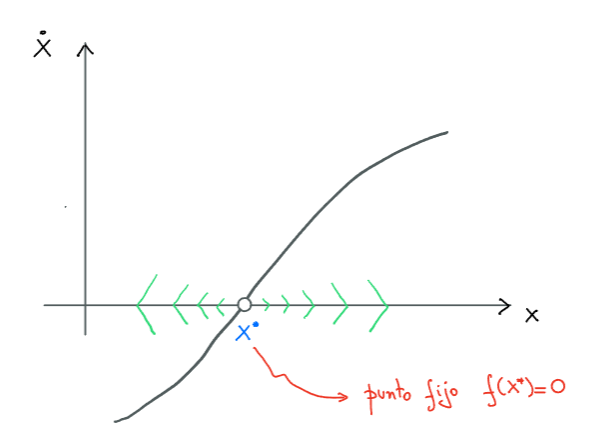 Ẋ
x
x*
punto fijo f(x*)=0